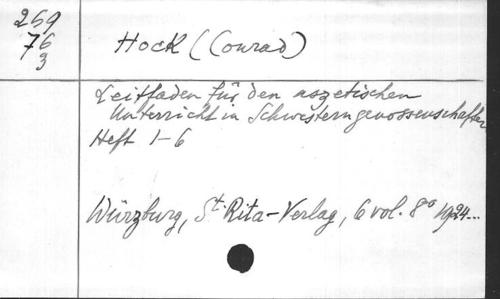 269
76
3
Hock (Conrad)
Leitfaden für den aszetischen
Unterricht in Schwesterngenossenschaften
Heft 1-6
Würzburg, St. Rita-Verlag, 6 vol. 8° 1924...